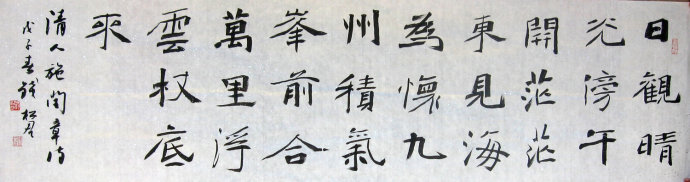 日觀晴
光傍午
開茫茫
東見海
為懷九
州積氣
峯前合
萬里浮
雲杖底
來
清人施閏章詩
戊子春